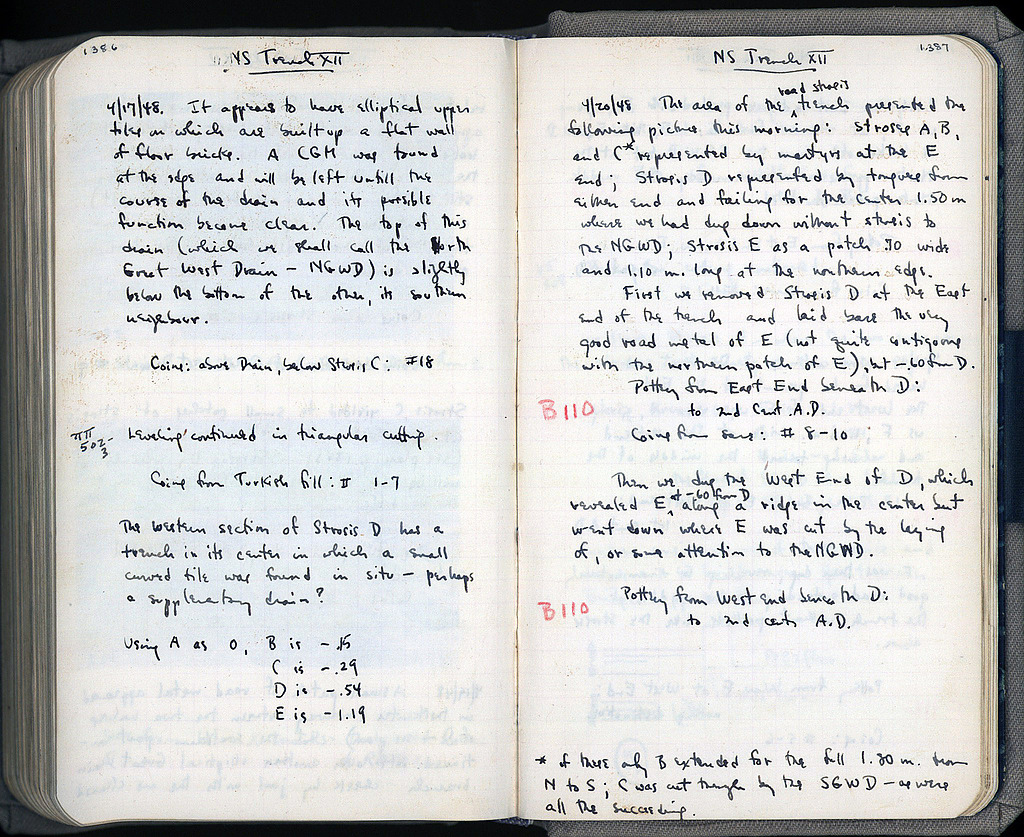 1386
NS Trench XII
4/17/48. It appears to have elliptical upper
tiles on which are built up a flat wall
of floor bricks. A CGM was found
at the edge and will be left untill the
course of the drain and its possible
function become clear. The top of this
drain (which we shall call the North
Great West Drain – NGWD) is slightly
below the bottom of the other, its southern
neighbour.
Coins: above Drain, below Strosis C: #18
ΠΠ
502-
3
Leveling continued in triangular cutting
Coins from Turkish fill: # 1-7
The western section of Strosis D has a
trench in its center in which a small
curved tile was found in situ – perhaps
a supplementary drain?
Using A as 0, B is -.15
C is -.29
D is -.54
E is -1.19
1387
NS Trench XII
road strosis
4/20/48 The area of the trench presented the
following picture this morning: Stroses A, B,
and C* represented by martyrs at the E
end; Strosis D represented by tongues from
either end and failing for the center 1.50 m
where we had dug down without strosis to
the NGWD; Strosis E as a patch .70 wide
and 1.10 m. long at the northern edge.
First we removed Strosis D at the East
end of the trench and laid bare the very
good road metal of E (not quite contiguous
with the northern patch of E), but -.60 from D.
Pottery from East End beneath D:
B110
to 2nd cent A.D.
Coins from same: # 8-10
Then we dug the West End of D, which
at -.60 from D
revealed E along a ridge in the center but
went down where E was cut by the laying
of, or some attention to the NGWD.
Pottery from West end beneath D:
B110
to 2nd cent A.D.
* of these only B extended for the full 1.30 m. from
N to S; C was cut through by the SGWD – as were
all the succeeding.